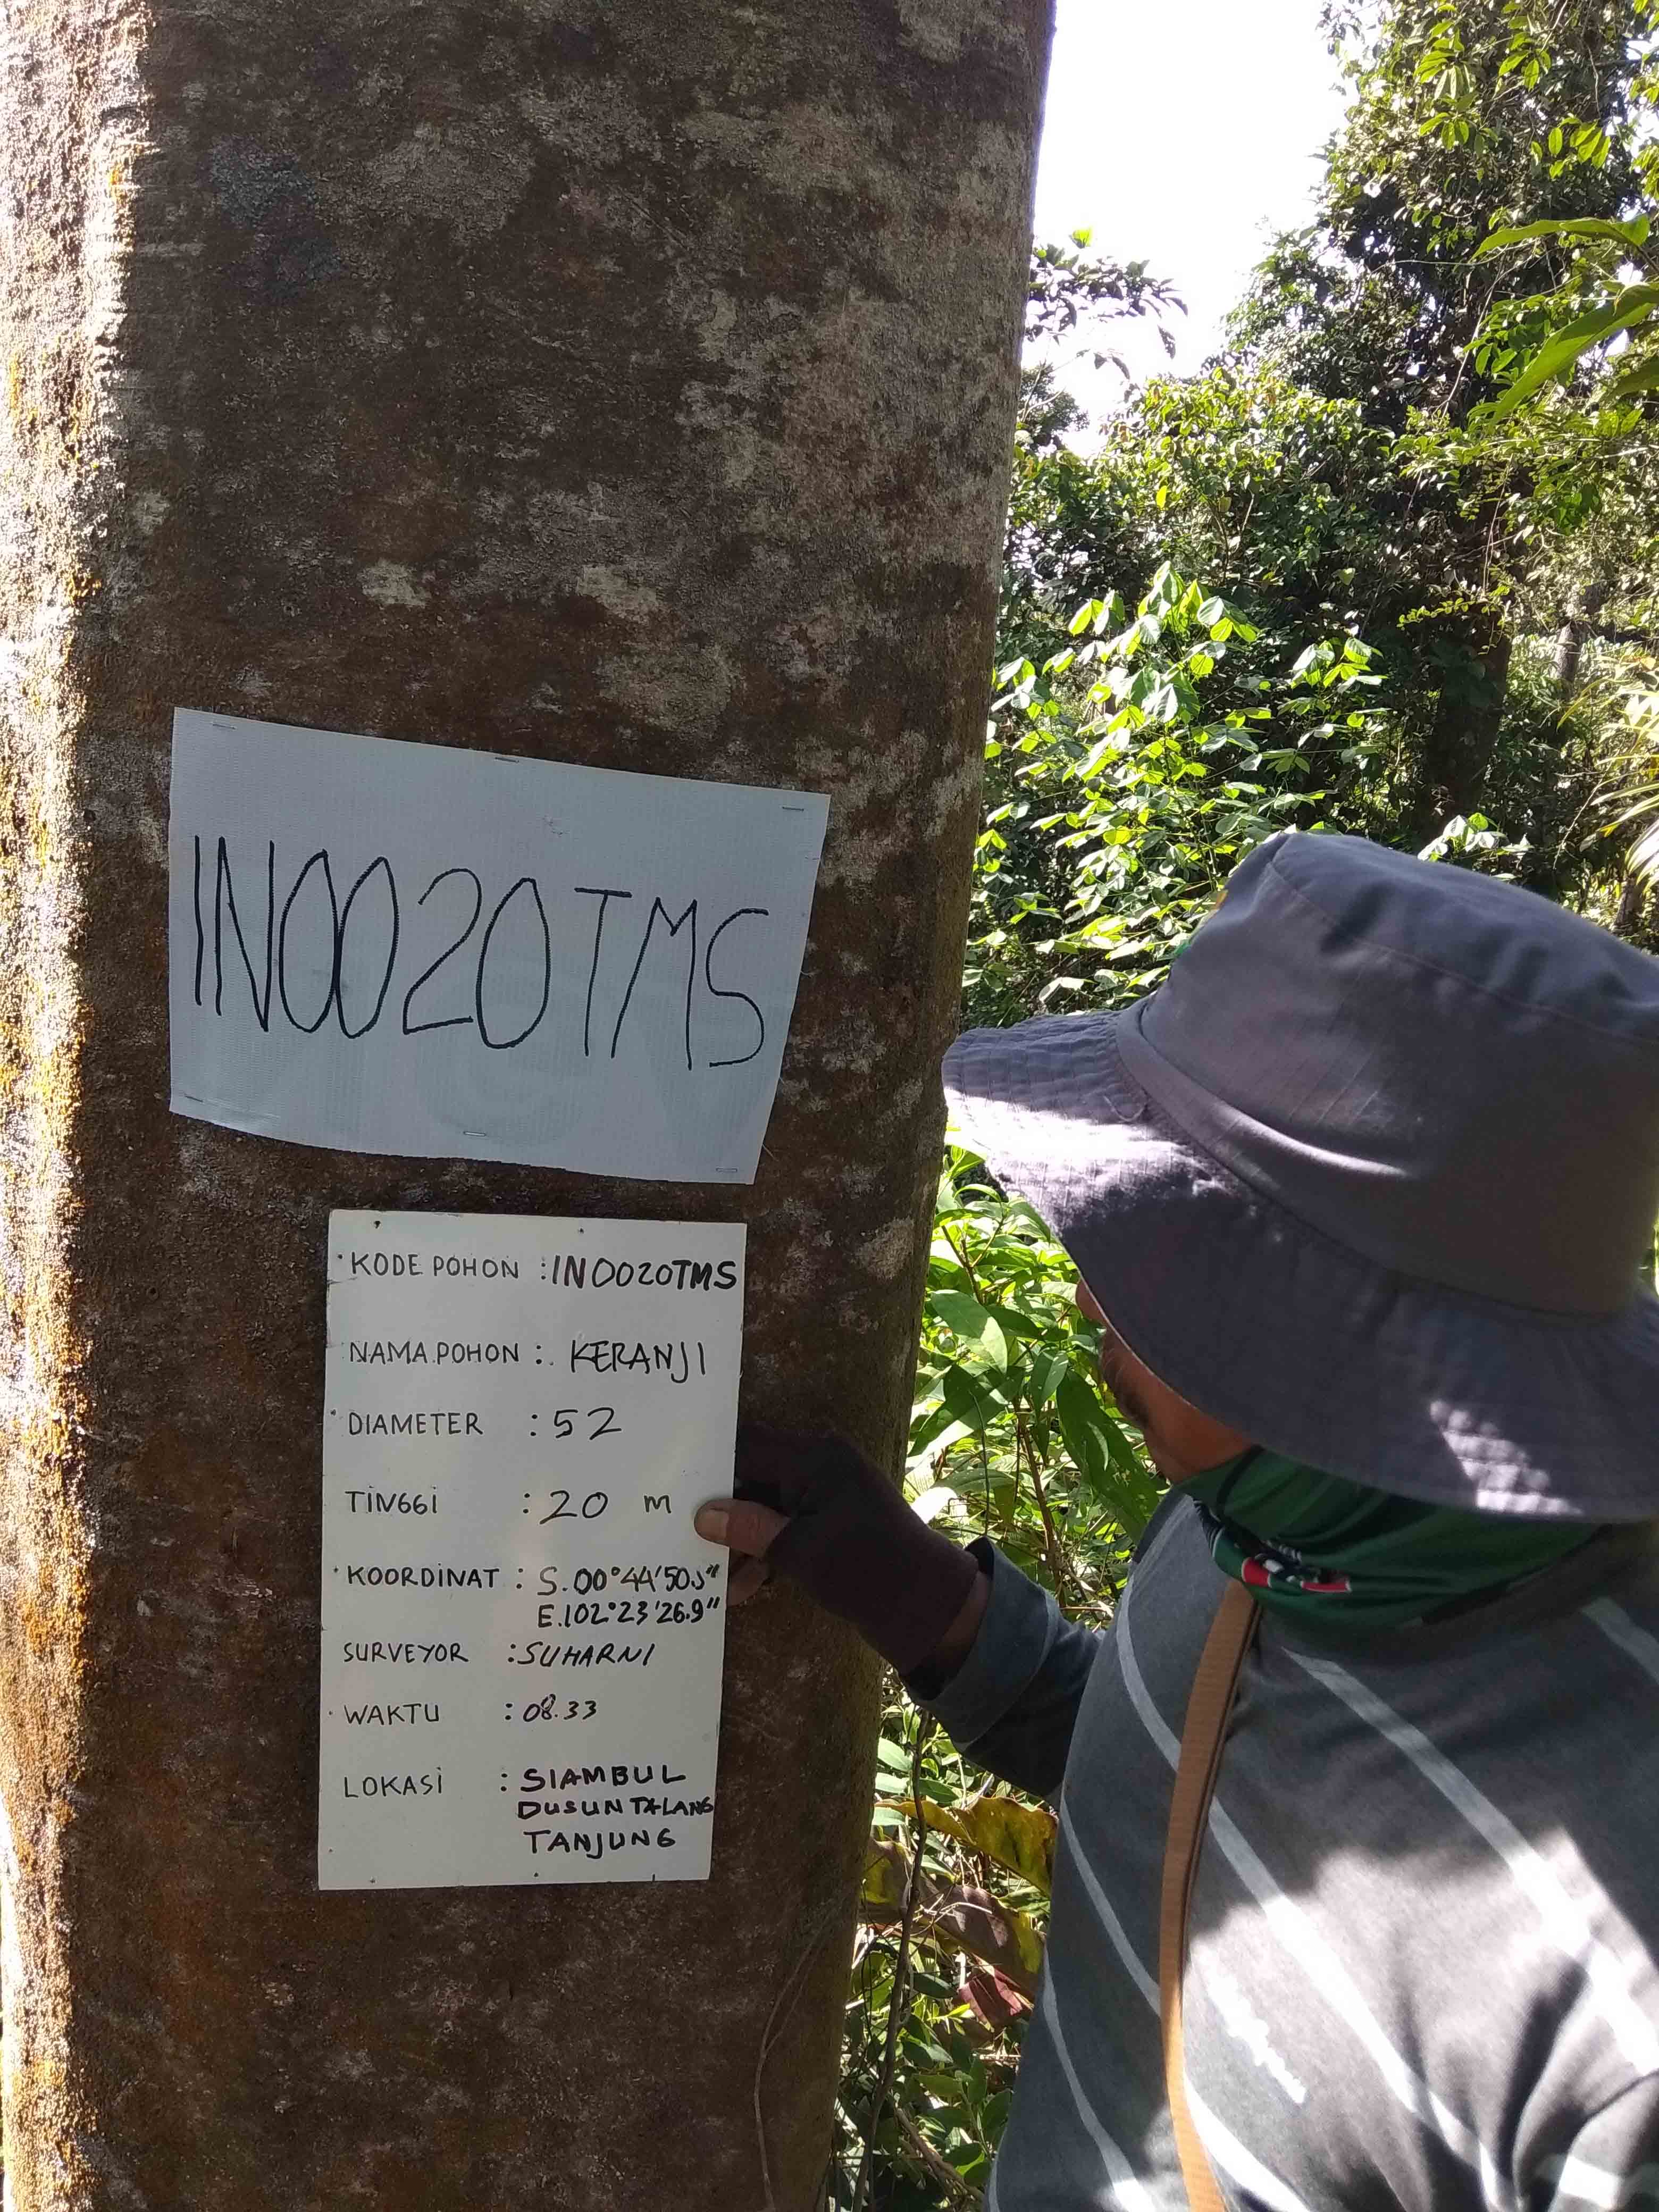 IN0020TMS
KODE POHON : IN0020TMS
NAMA.POHON : . KERANJI
DIAMETER : 52
TiNGGi : 20 m
KOORDiNAT : S.00°44'50.5"
E.102°23'26.9"
SURVEYOR : SUHARNI
WAKTU : 08.33
LOKASi : SIAMBUL
DUSUN TALANG
TANJUNG